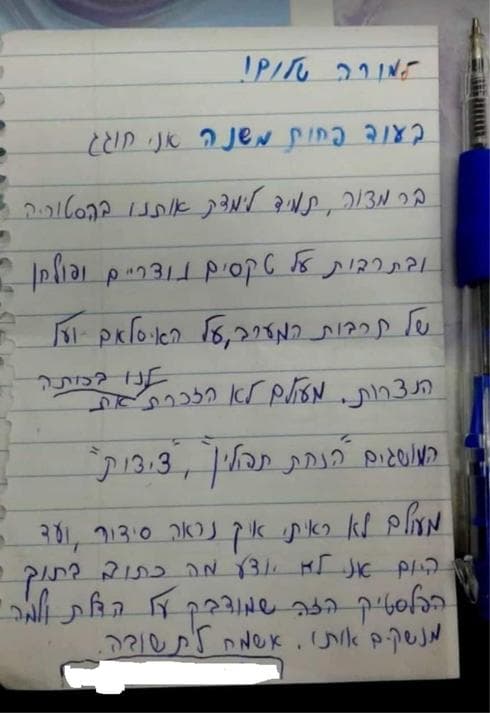 למורה שלום!
בעוד פחות משנה אני חוגג
בר מצוה, תמיד לימדת אותנו בהסטוריה
ובתרבות על טקסים נוצריים ופולחן
של תרבות המערב, על האיסלאם ועל
הנצרות. מעולם לא הזכרת את לנו בכותה
המושגים "הנחת תפולין", "ציצות"
מעולם לא ראיתי איך נראה סידור, ועד
היום אני לא יודע מה כתוב בתוך
הפלסטיק הזה שמודבק על הדלת ולמה
מנשקים אותו. אשמח לתשובה.